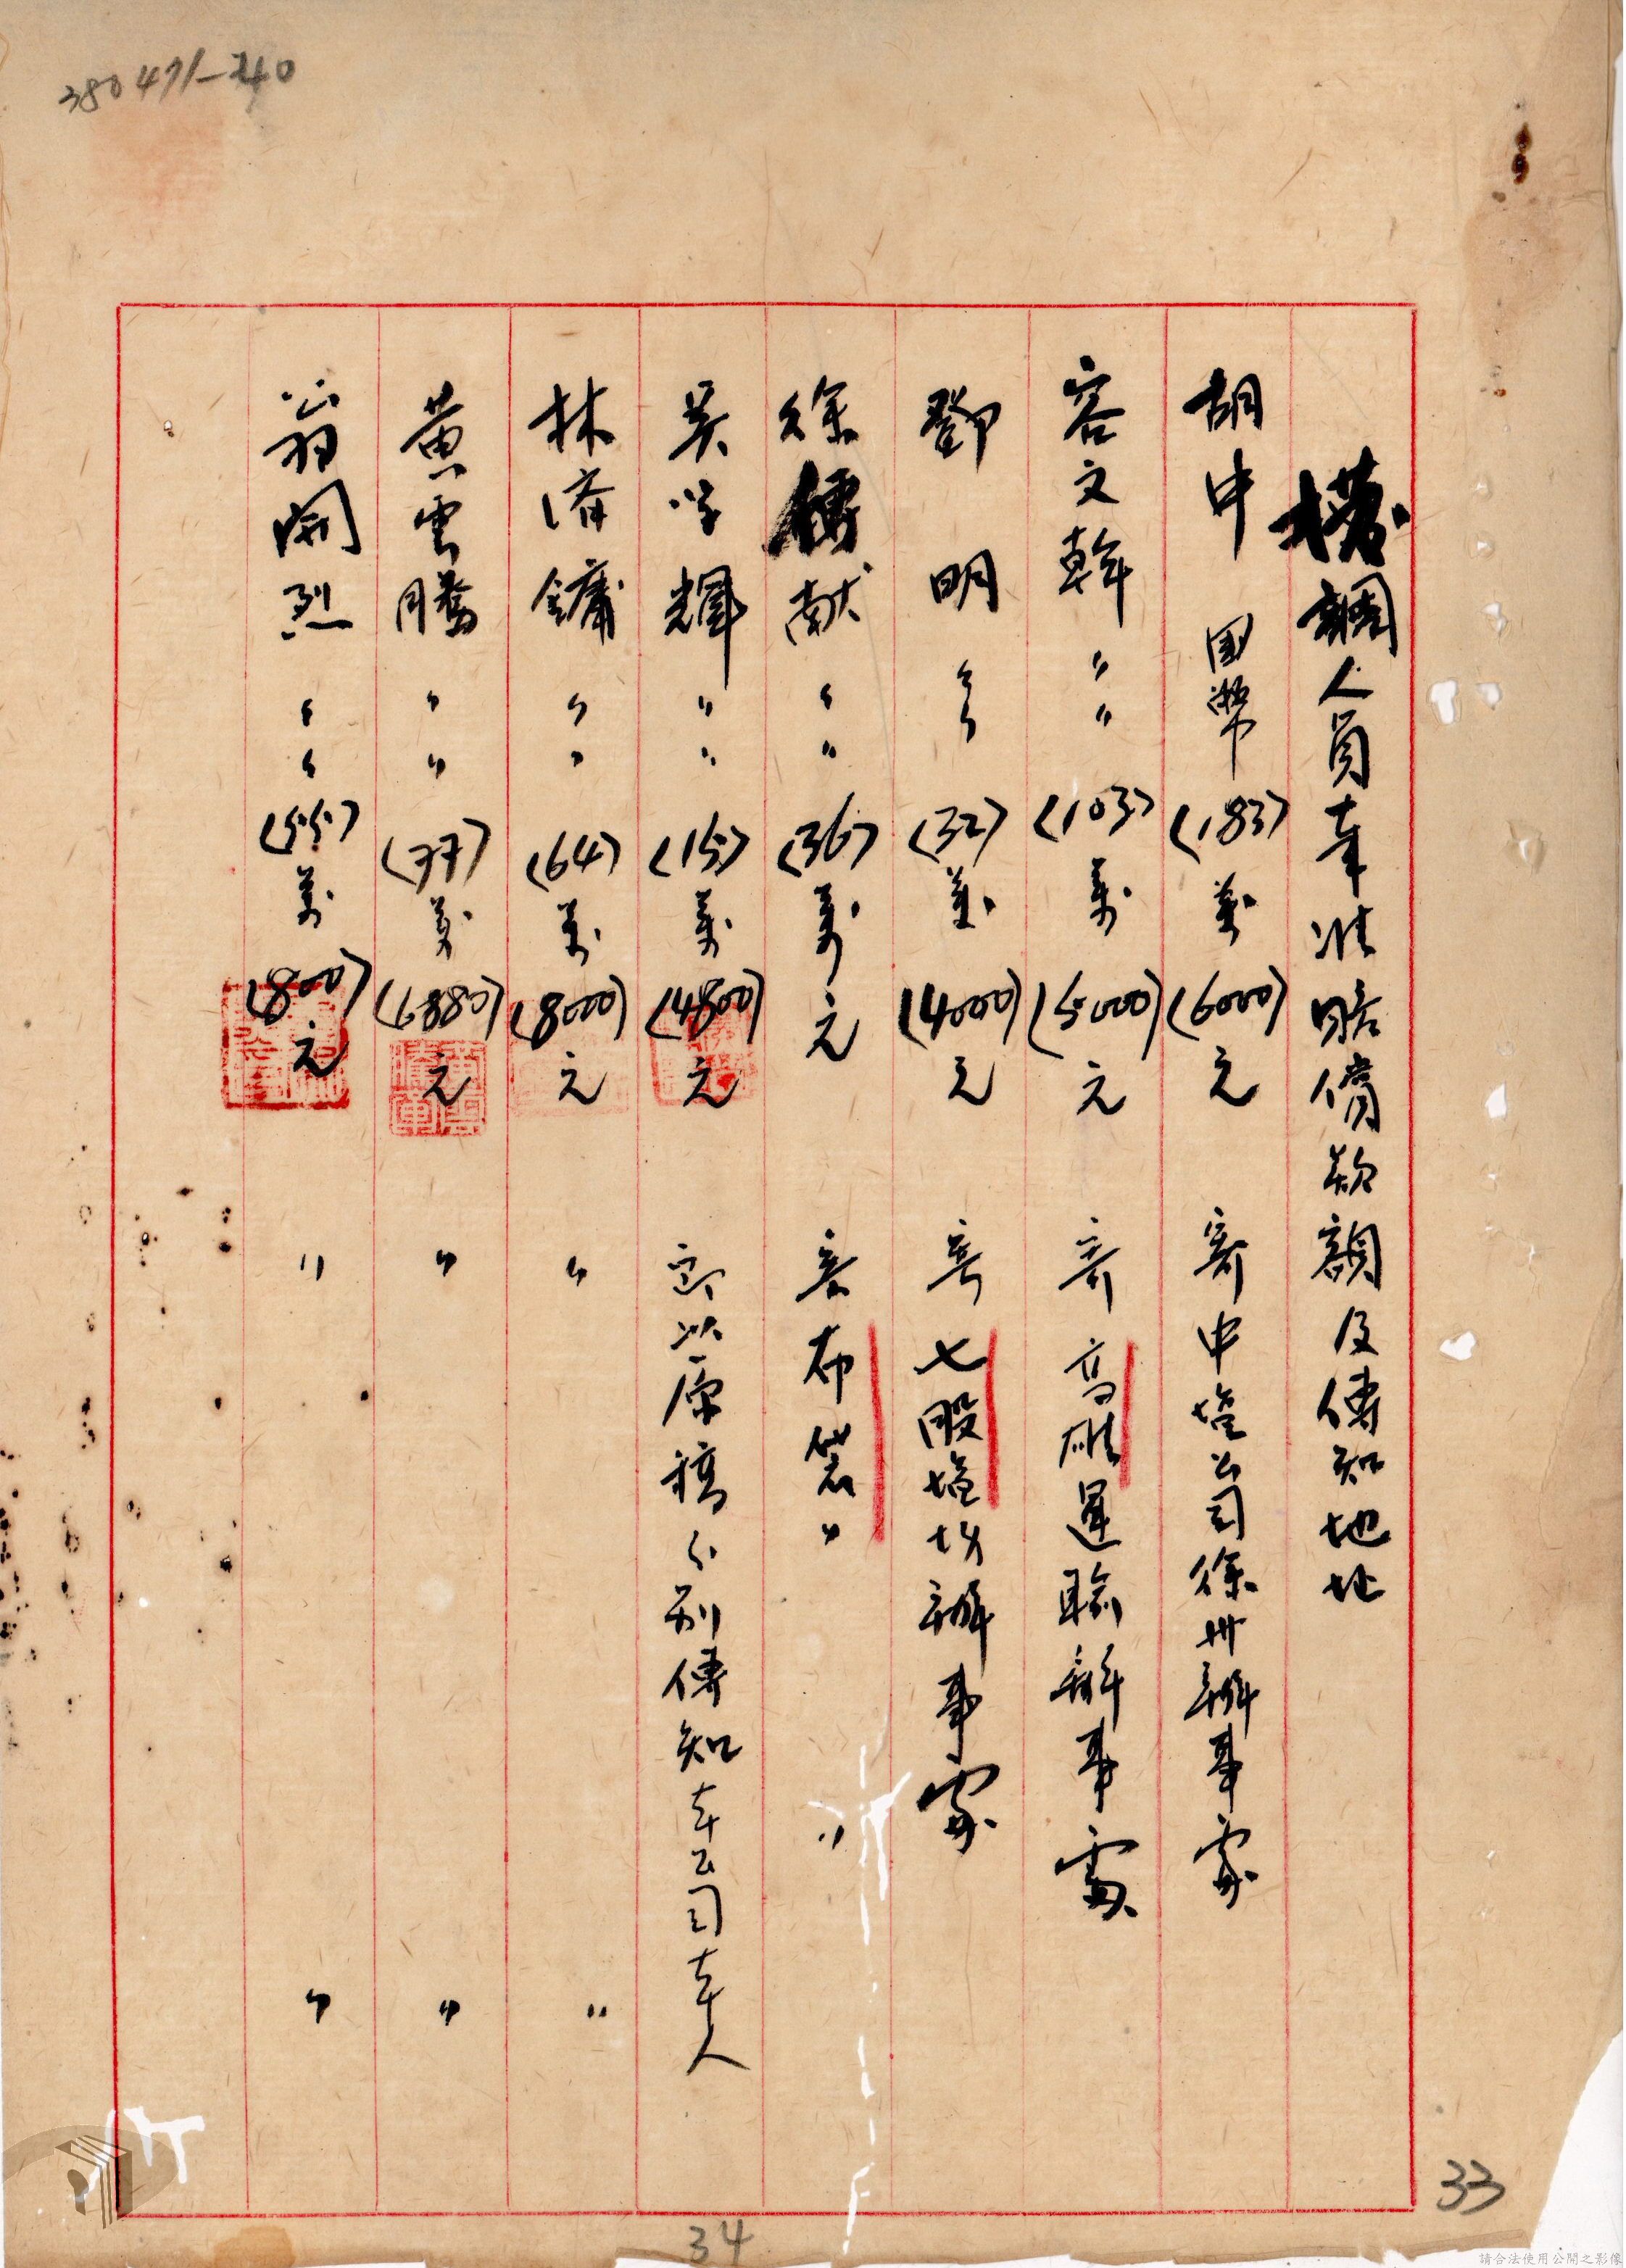 380471-240
調人員奉准賠償款額及傳知地址
胡中 国幣 (183)萬(6000)元 寄中塩公司徐州辦事處
容文幹 〃〃 (103)萬(5000)元 寄高雄運輸辦事處
鄧明 〃〃 (32)萬(4000)元 寄七股塩場辦事處
徐傳献 〃〃 (36)萬元 寄布袋〃 〃
吳學輝 〃〃 (15)萬(4800)元 即以原稿分別傳知本公司本人
林濟鏞 〃〃 (64)萬(8000)元 〃 〃
黃雲騰 〃〃 (77)萬(6880)元 〃 〃
翁開烈 〃〃 (55)萬(800)元 〃 〃
33
34
請合法使用公開之影像